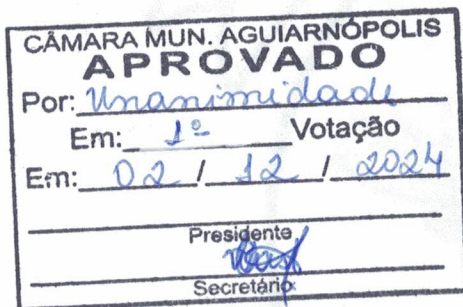 CÂMARA MUN. AGUIARNÓPOLIS
APROVADO
Por: Unanimidade
Em: 1ª Votação
Em: 02 / 12 / 2024
Presidente
Secretário